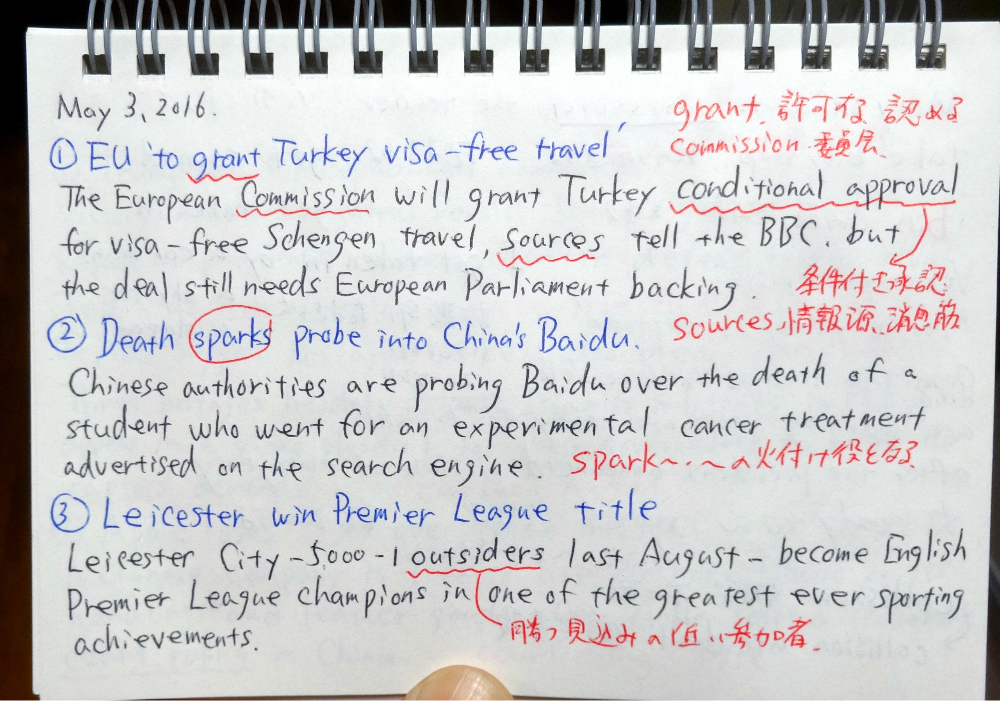 May 3, 2016.
grant. 許可する 認める
commission 委員会
① EU 'to grant Turkey visa-free travel'
The European Commission will grant Turkey conditional approval
for visa-free Schengen travel, sources tell the BBC. but
the deal still needs European Parliament backing.
条件付き承認
sources 情報源、消息筋
② Death sparks probe into China's Baidu.
Chinese authorities are probing Baidu over the death of a
student who went for an experimental cancer treatment
advertised on the search engine.
spark〜. 〜の火付け役となる
③ Leicester win Premier League title
Leicester City - 5,000-1 outsiders last August - become English
Premier League champions in one of the greatest ever sporting
achievements.
勝つ見込みの低い参加者.